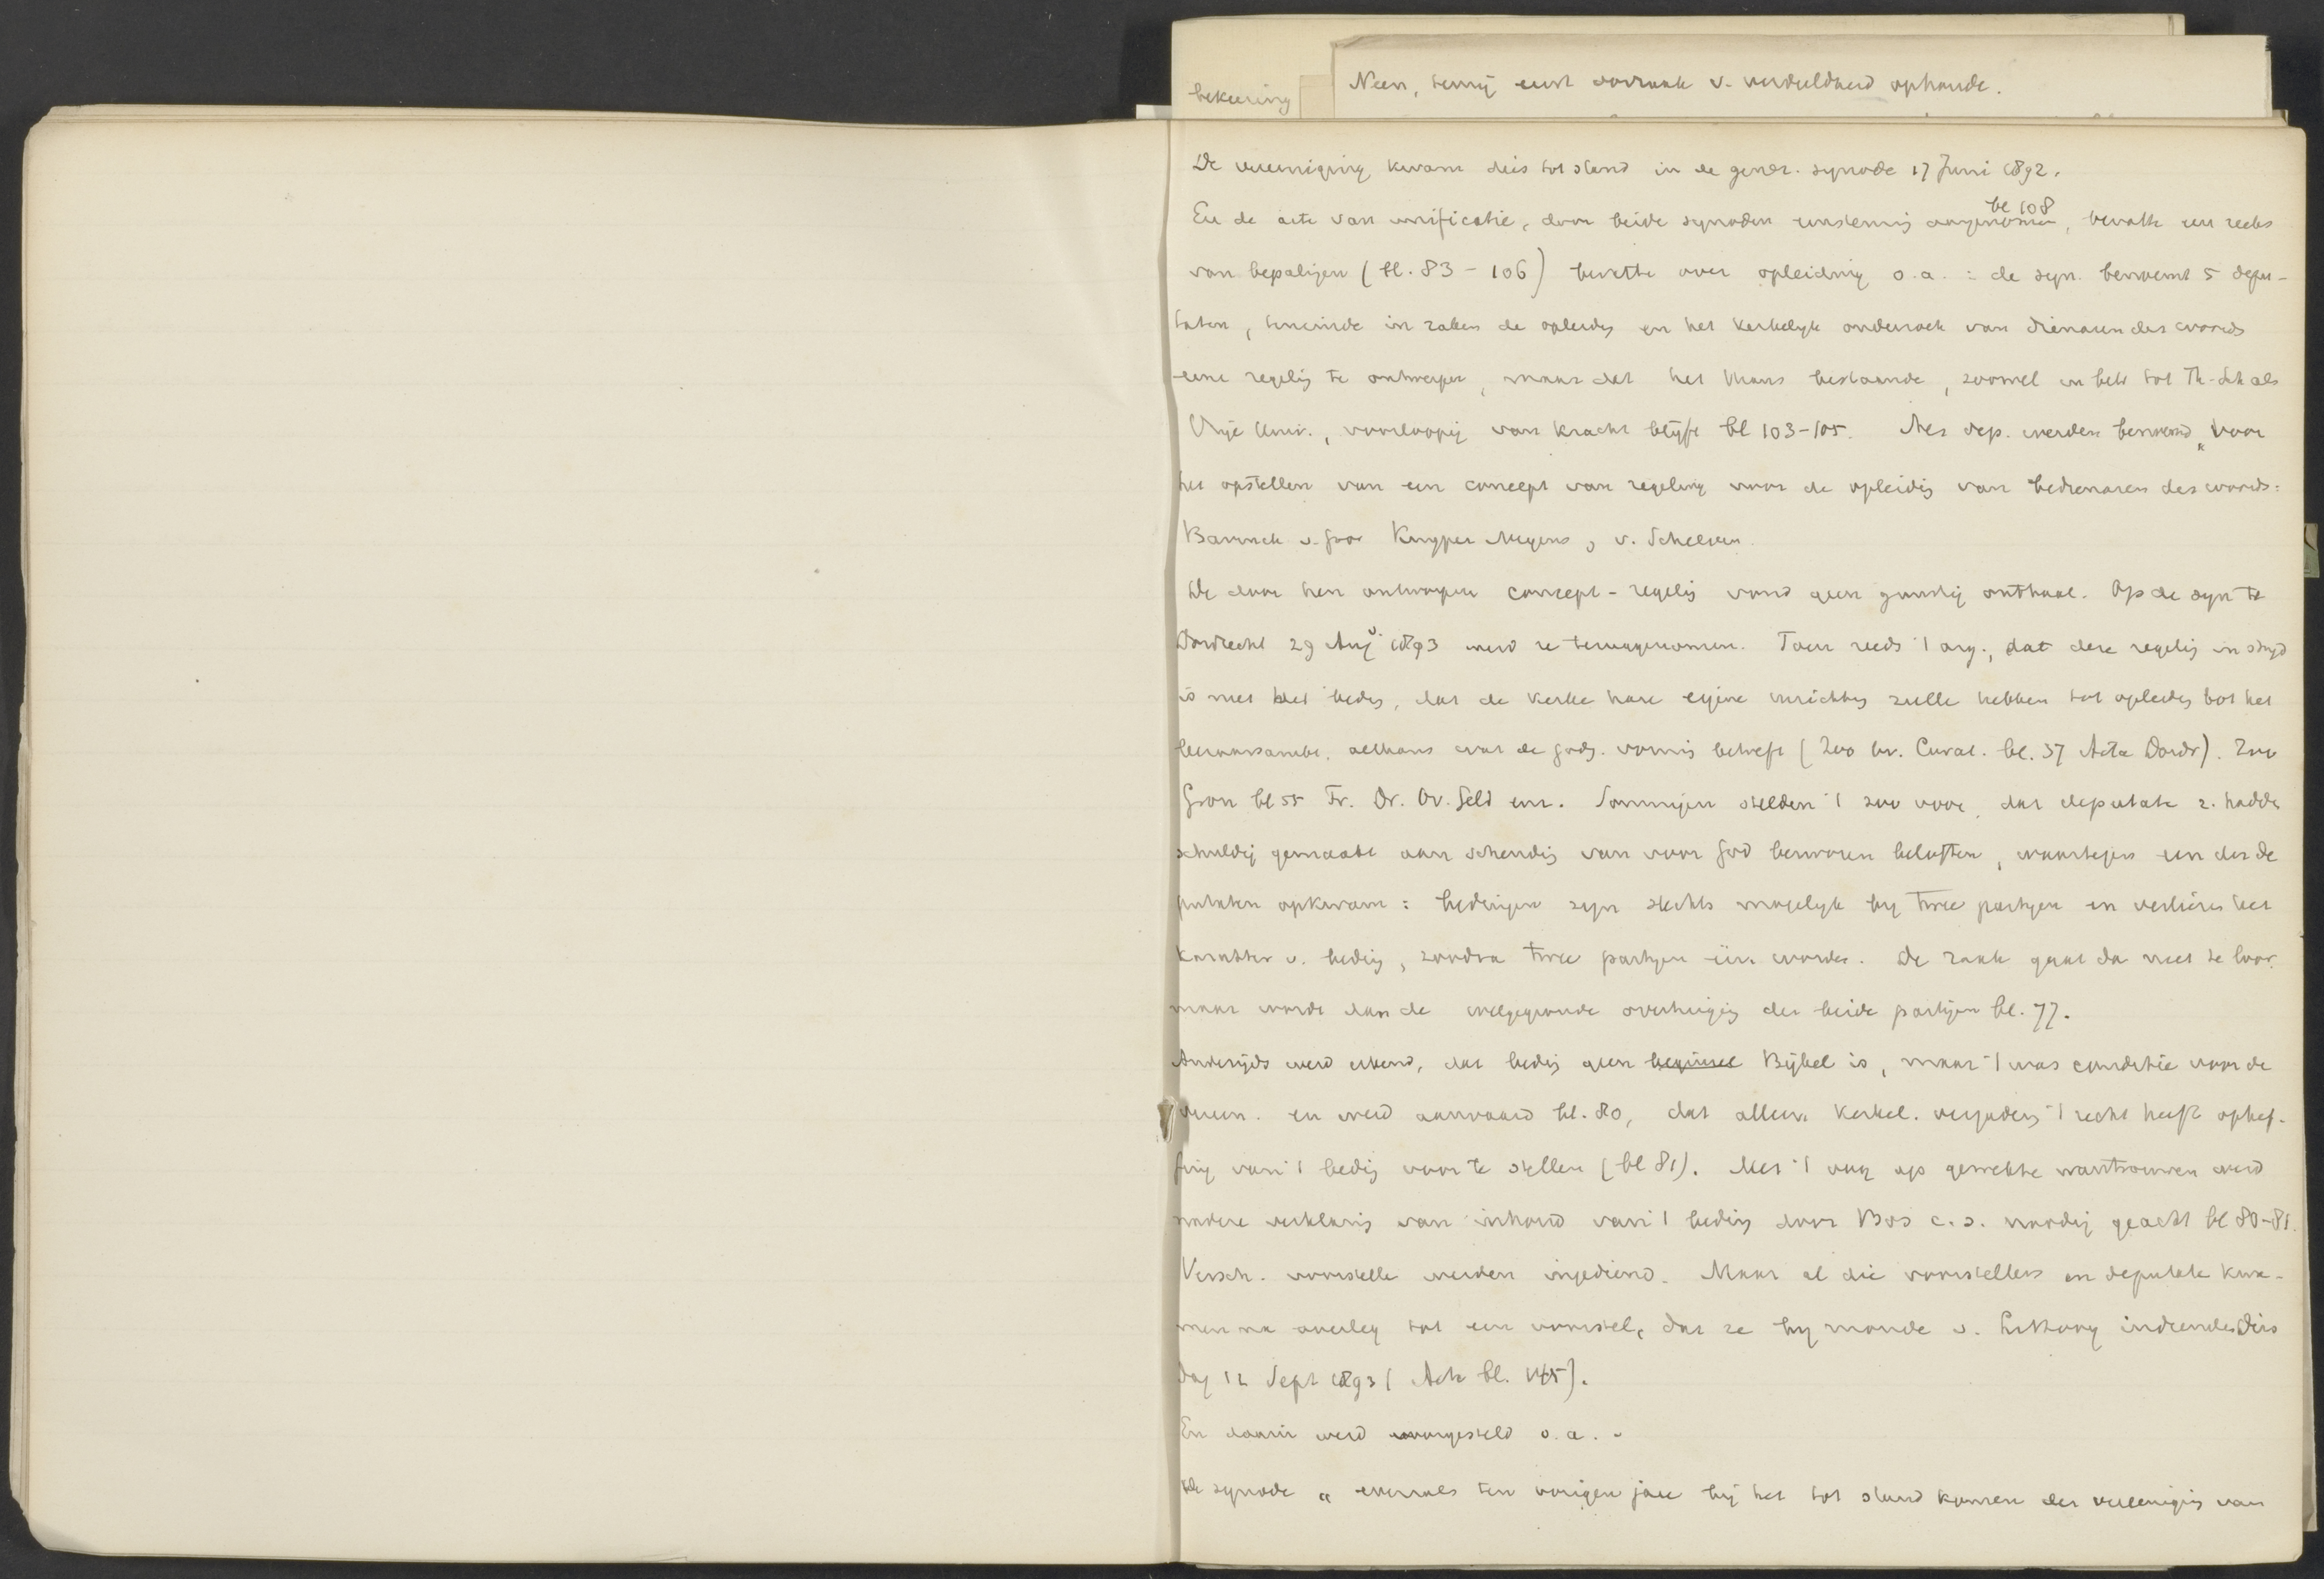 bekeering
Neen, tenzij eerst oorzaak v. verdeeldheid ophoude.
De vereeniging kwam dus tot stand in de gener. synode 17 Juni 1892.
En de acte van unificatie, door beide synoden eenstemmig aangenomen bl 108, bevatte een reeks
van bepalingen (bl. 83 - 106) bevatte over opleiding o.a. : de syn. benoemt 5 depu-
taten, teneinde in zake de opleidg en het kerkelijk onderzoek van dienaren des woords
eene regelig te ontwerpen, maar dat het thans bestaande, zoowel in betr tot Th. Sch als
Vrije Univ., voorloopig van kracht blijft bl 103-105. Als dep. werden benoemd „voor
het opstellen van een concept van regeling voor de opleidig van bedienaren des woords:
Bavinck v. Goor Kuyper Noyens, v. Schelven.
De door hen ontworpen concept-regelig vond geen gunstig onthaal. Op de syn te
Dordrecht 29 Aug 1893 werd ze teruggenomen. Toen reeds 't arg., dat deze regelig in strijd
is met het bedig, dat de kerke hare eigene inrichtig zulle hebben tot opleidig tot het
leeraarsambt, althans wat de godg. vormig betreft (Zoo br. Curat. bl. 37 Acta Dordr). Zoo
Gron bl 55 Fr. Dr. Ov. Geld enz. Sommigen stelden 't zoo voor, dat deputate z. hadde
schuldig gemaakt aan schendig van voor God bezworen beloften, waartegen een der de
putaten opkwam: bedingen zijn slechts mogelijk bij twee partijen en verliezen het
karakter v. bedig, zoodra twee partijen één worden. De zaak gaat dan niet te loor
maar worde dan de welgegronde overtuigig der beide partijen bl. 77.
Anderzijds werd erkend, dat bedig geen beginsel Bijbel is, maar 't was conditie voor de
vereen. en werd aanvaard bl. 80, dat alleen kerkel. vergaderg 't recht heeft ophef-
fing van 't bedig voor te stellen (bl 81). Met 't oog op gewekte wantrouwen werd
nadere verklarig van inhoud van 't bedig door Bos c.s. noodig geacht bl 80-81.
Versch. voorstelle werden ingediend. Maar al die voorstellers en deputate kwa-
men na overleg tot een voorstel, dat ze bij monde v. Littooy indienden Dins
dag 12 Sept 1893 (Acta bl. 145).
En daarin werd voorgesteld o.a. -
De synode „ evenals ten vorigen jare bij het tot stand komen der vereenigig van